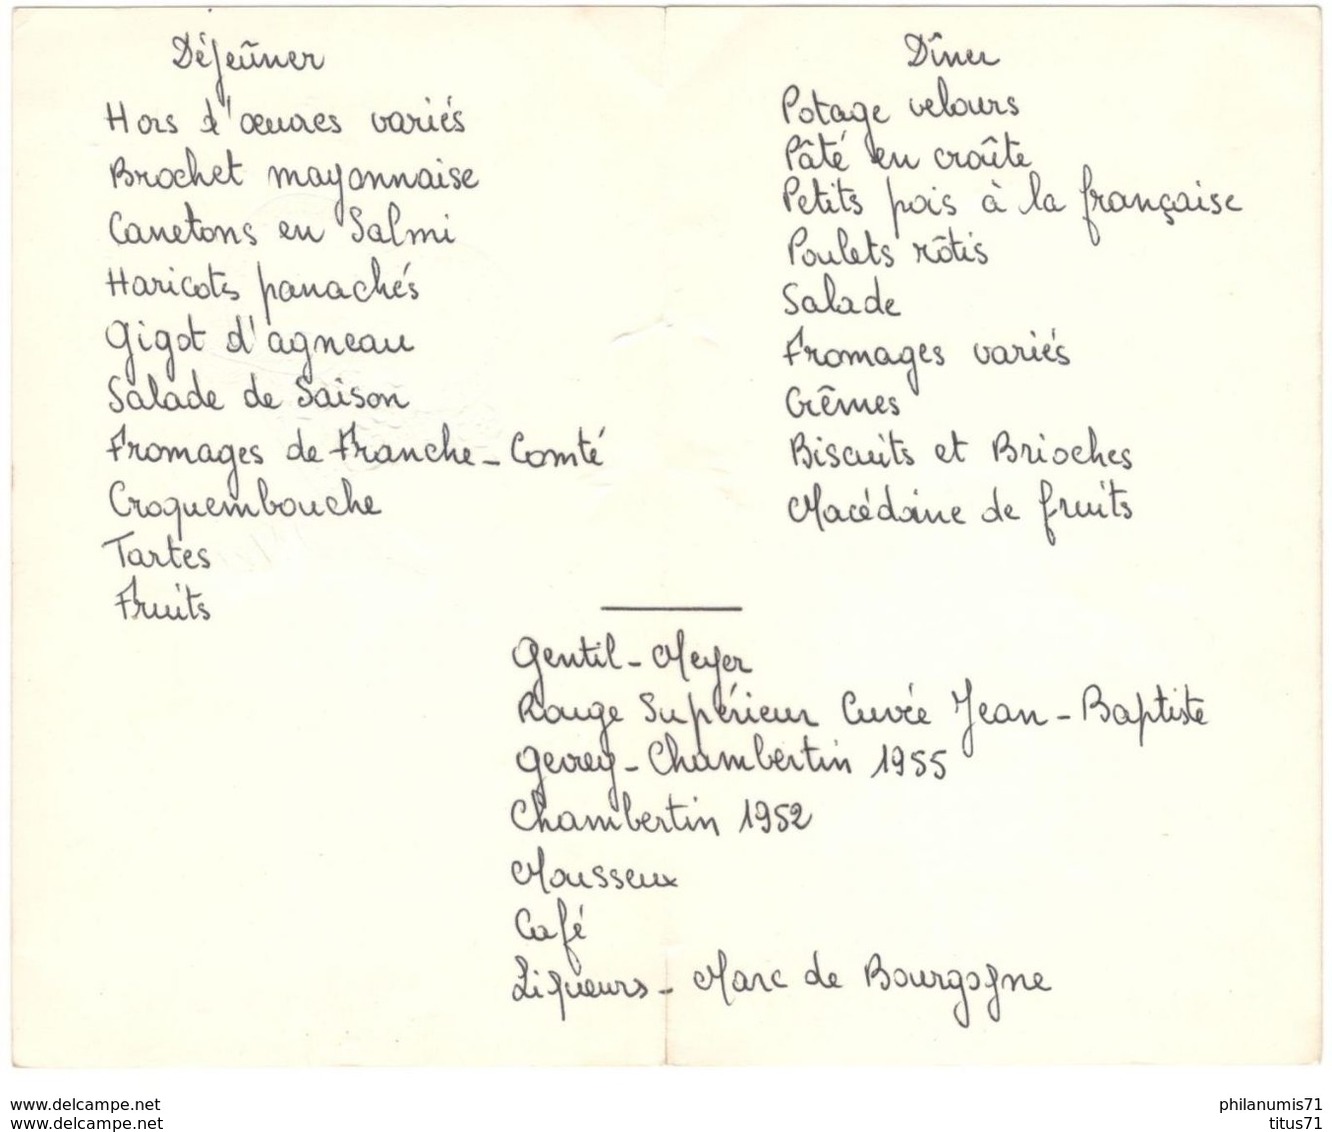 Déjeûner
Hors d'œuvres variés
Brochet mayonnaise
Canetons en Salmi
Haricots panachés
Gigot d'agneau
Salade de Saison
Fromages de Franche-Comté
Croquembouche
Tartes
Fruits
Dîner
Potage velours
Pâté en croûte
Petits pois à la française
Poulets rôtis
Salade
Fromages variés
Crêmes
Biscuits et Brioches
Macédoine de fruits
Gentil-Meyer
Rouge Supérieur Cuvée Jean-Baptiste
Gevrey-Chambertin 1955
Chambertin 1952
Mousseux
Café
Liqueurs - Marc de Bourgogne
www.delcampe.net
www.delcampe.net
philanumis71
titus71